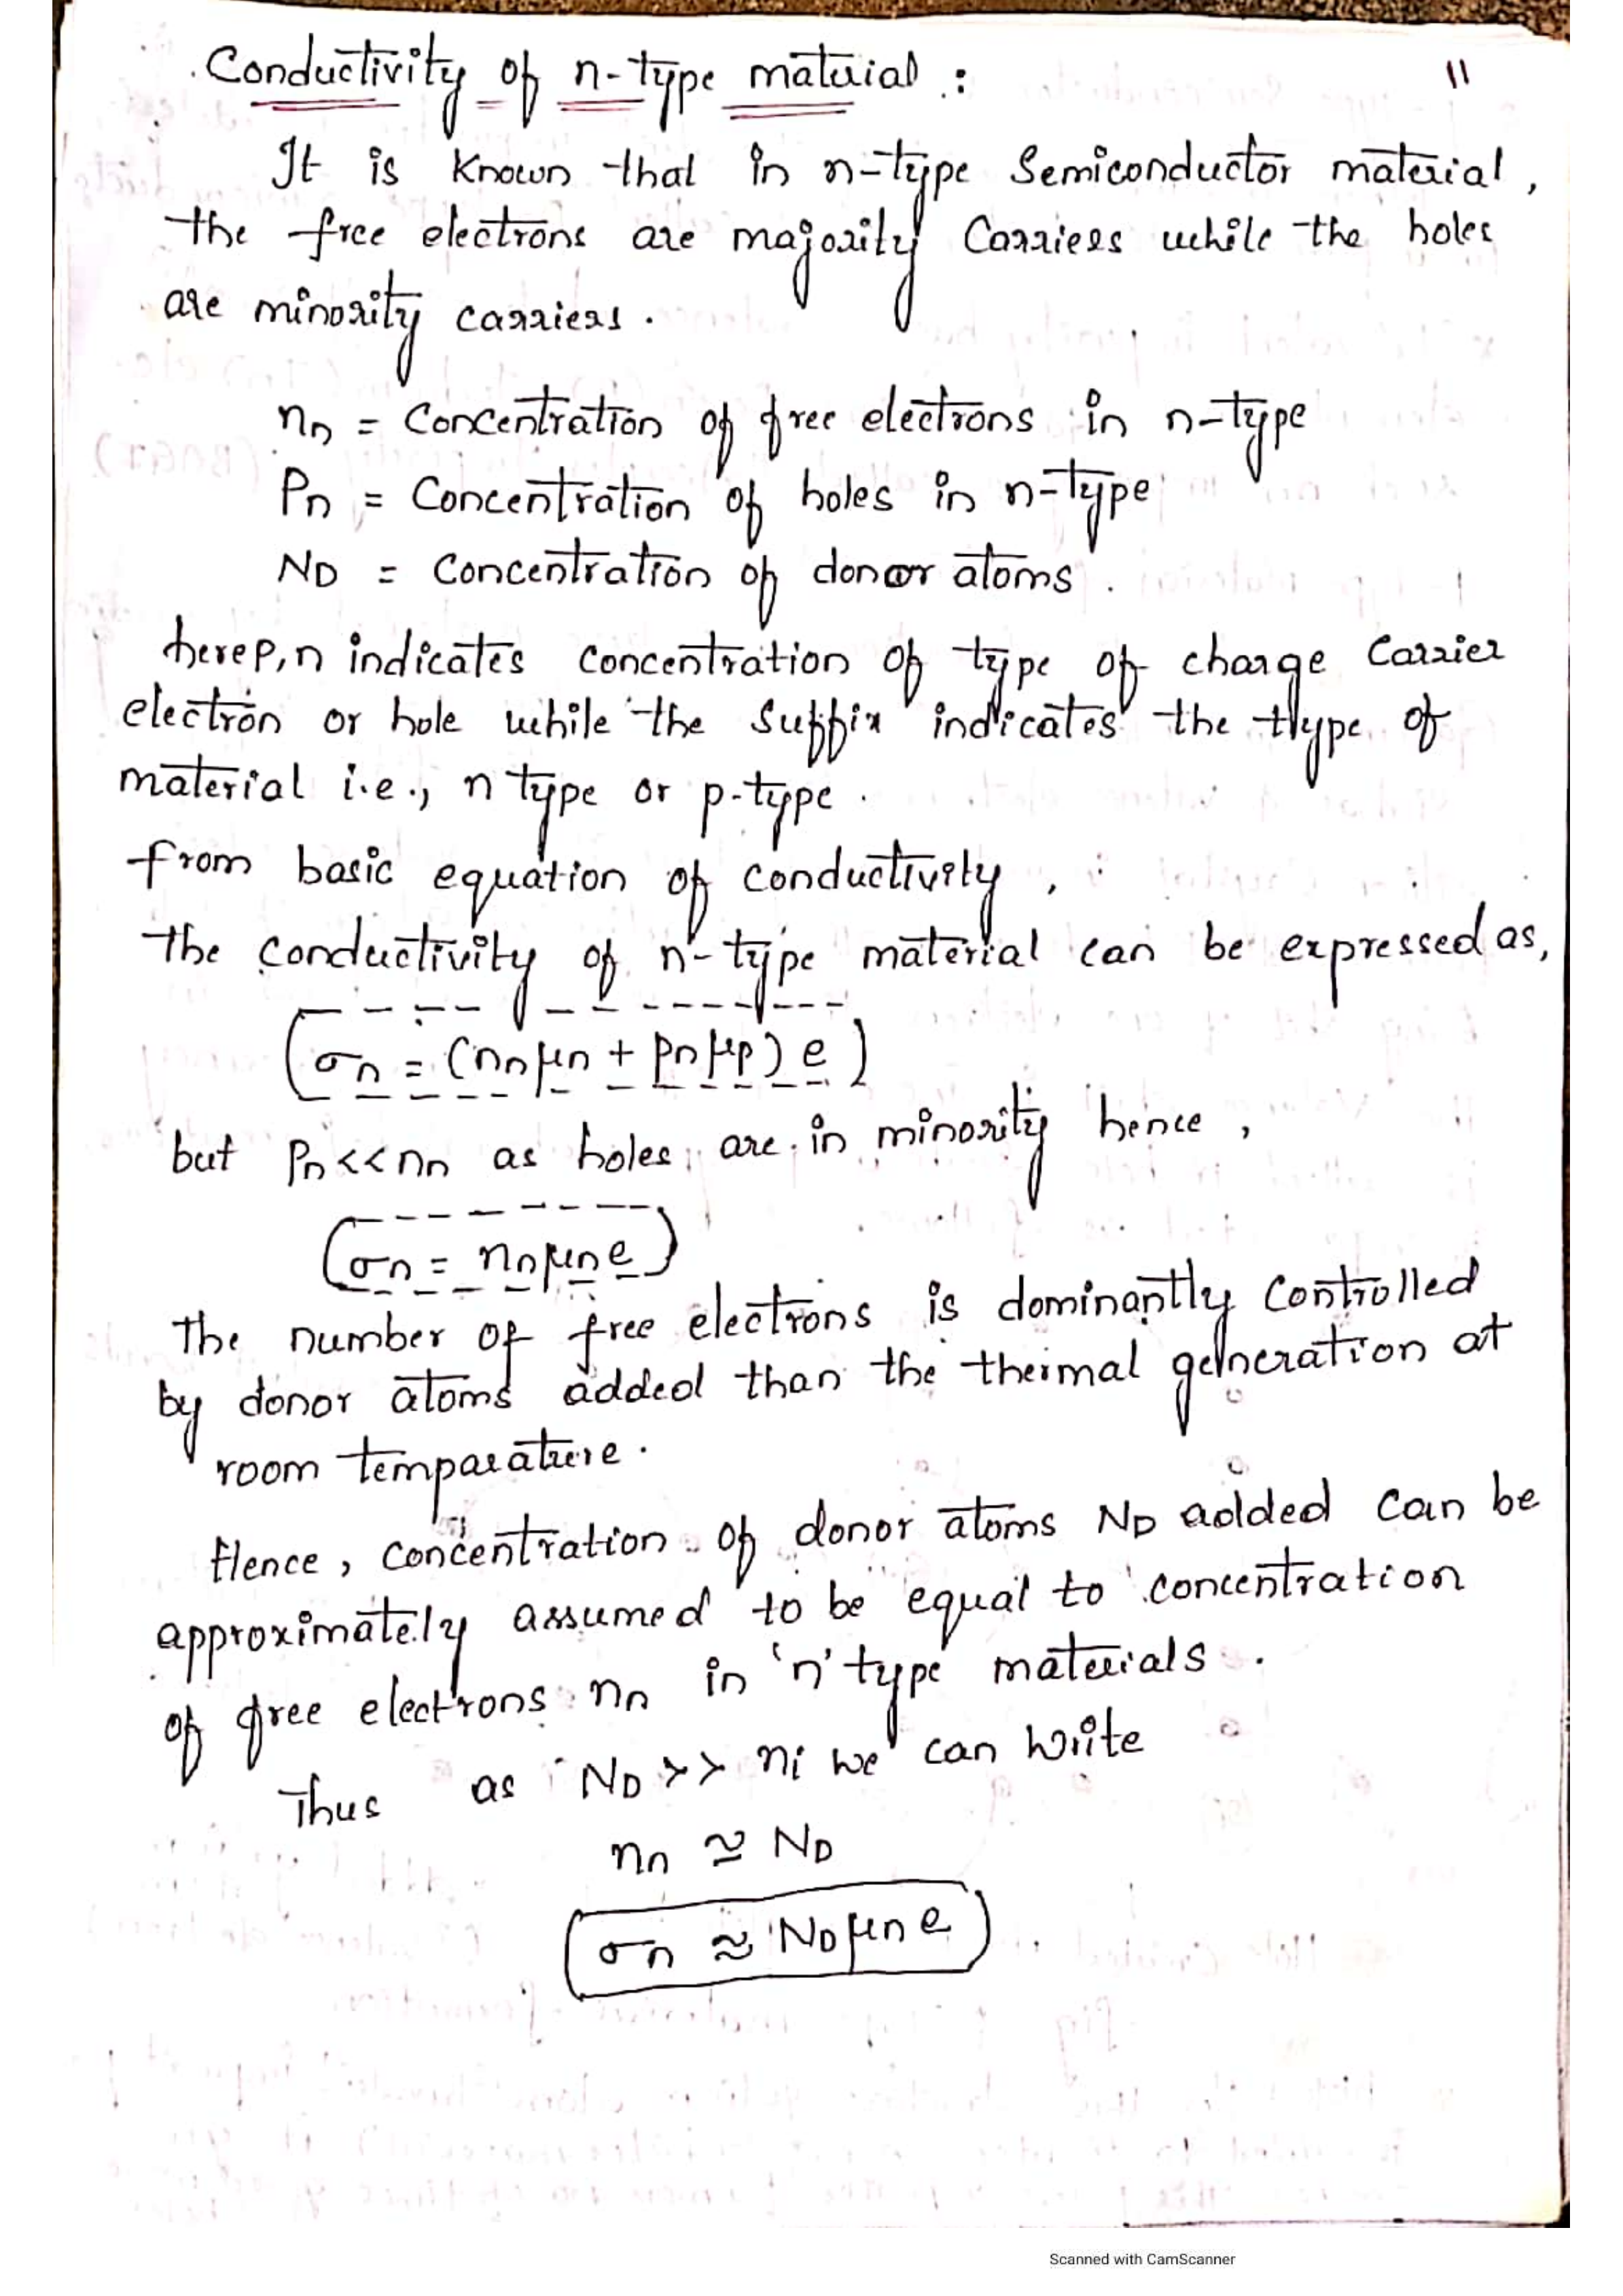 Conductivity of n-type material :
11
It is known that in n-type Semiconductor material,
the free electrons are majority Carriers while the holes
are minority carriers.
nn = Concentration of free electrons in n-type
Pn = Concentration of holes in n-type
ND = Concentration of donor atoms.
here p,n indicates concentration of type of charge Carrier
electron or hole while the Suffix indicates the type of
material i.e., n type or p-type.
from basic equation of conductivity,
the conductivity of n-type material can be expressed as,
σn = (nnμn + pnμp) e
but Pn<<nn as holes are in minority hence,
σn = nnμne
The number of free electrons is dominantly Controlled
by donor atoms added than the thermal generation at
room temparature.
Hence, concentration of donor atoms ND added can be
approximately assumed to be equal to concentration
of free electrons nn in 'n' type materials.
Thus as ND >> ni we can write
nn ≅ ND
σn ≈ NDμn e
Scanned with CamScanner